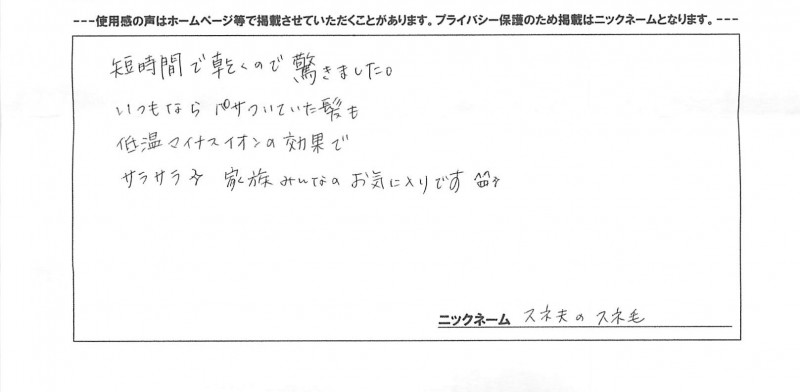 ---使用感の声はホームページ等で掲載させていただくことがあります。プライバシー保護のため掲載はニックネームとなります。---
短時間で乾くので驚きました。
いつもなら パサついていた髪も
低温マイナスイオンの効果で
サラサラ♪ 家族みんなの お気に入りです ^^♪
ニックネーム スネ夫のスネ毛